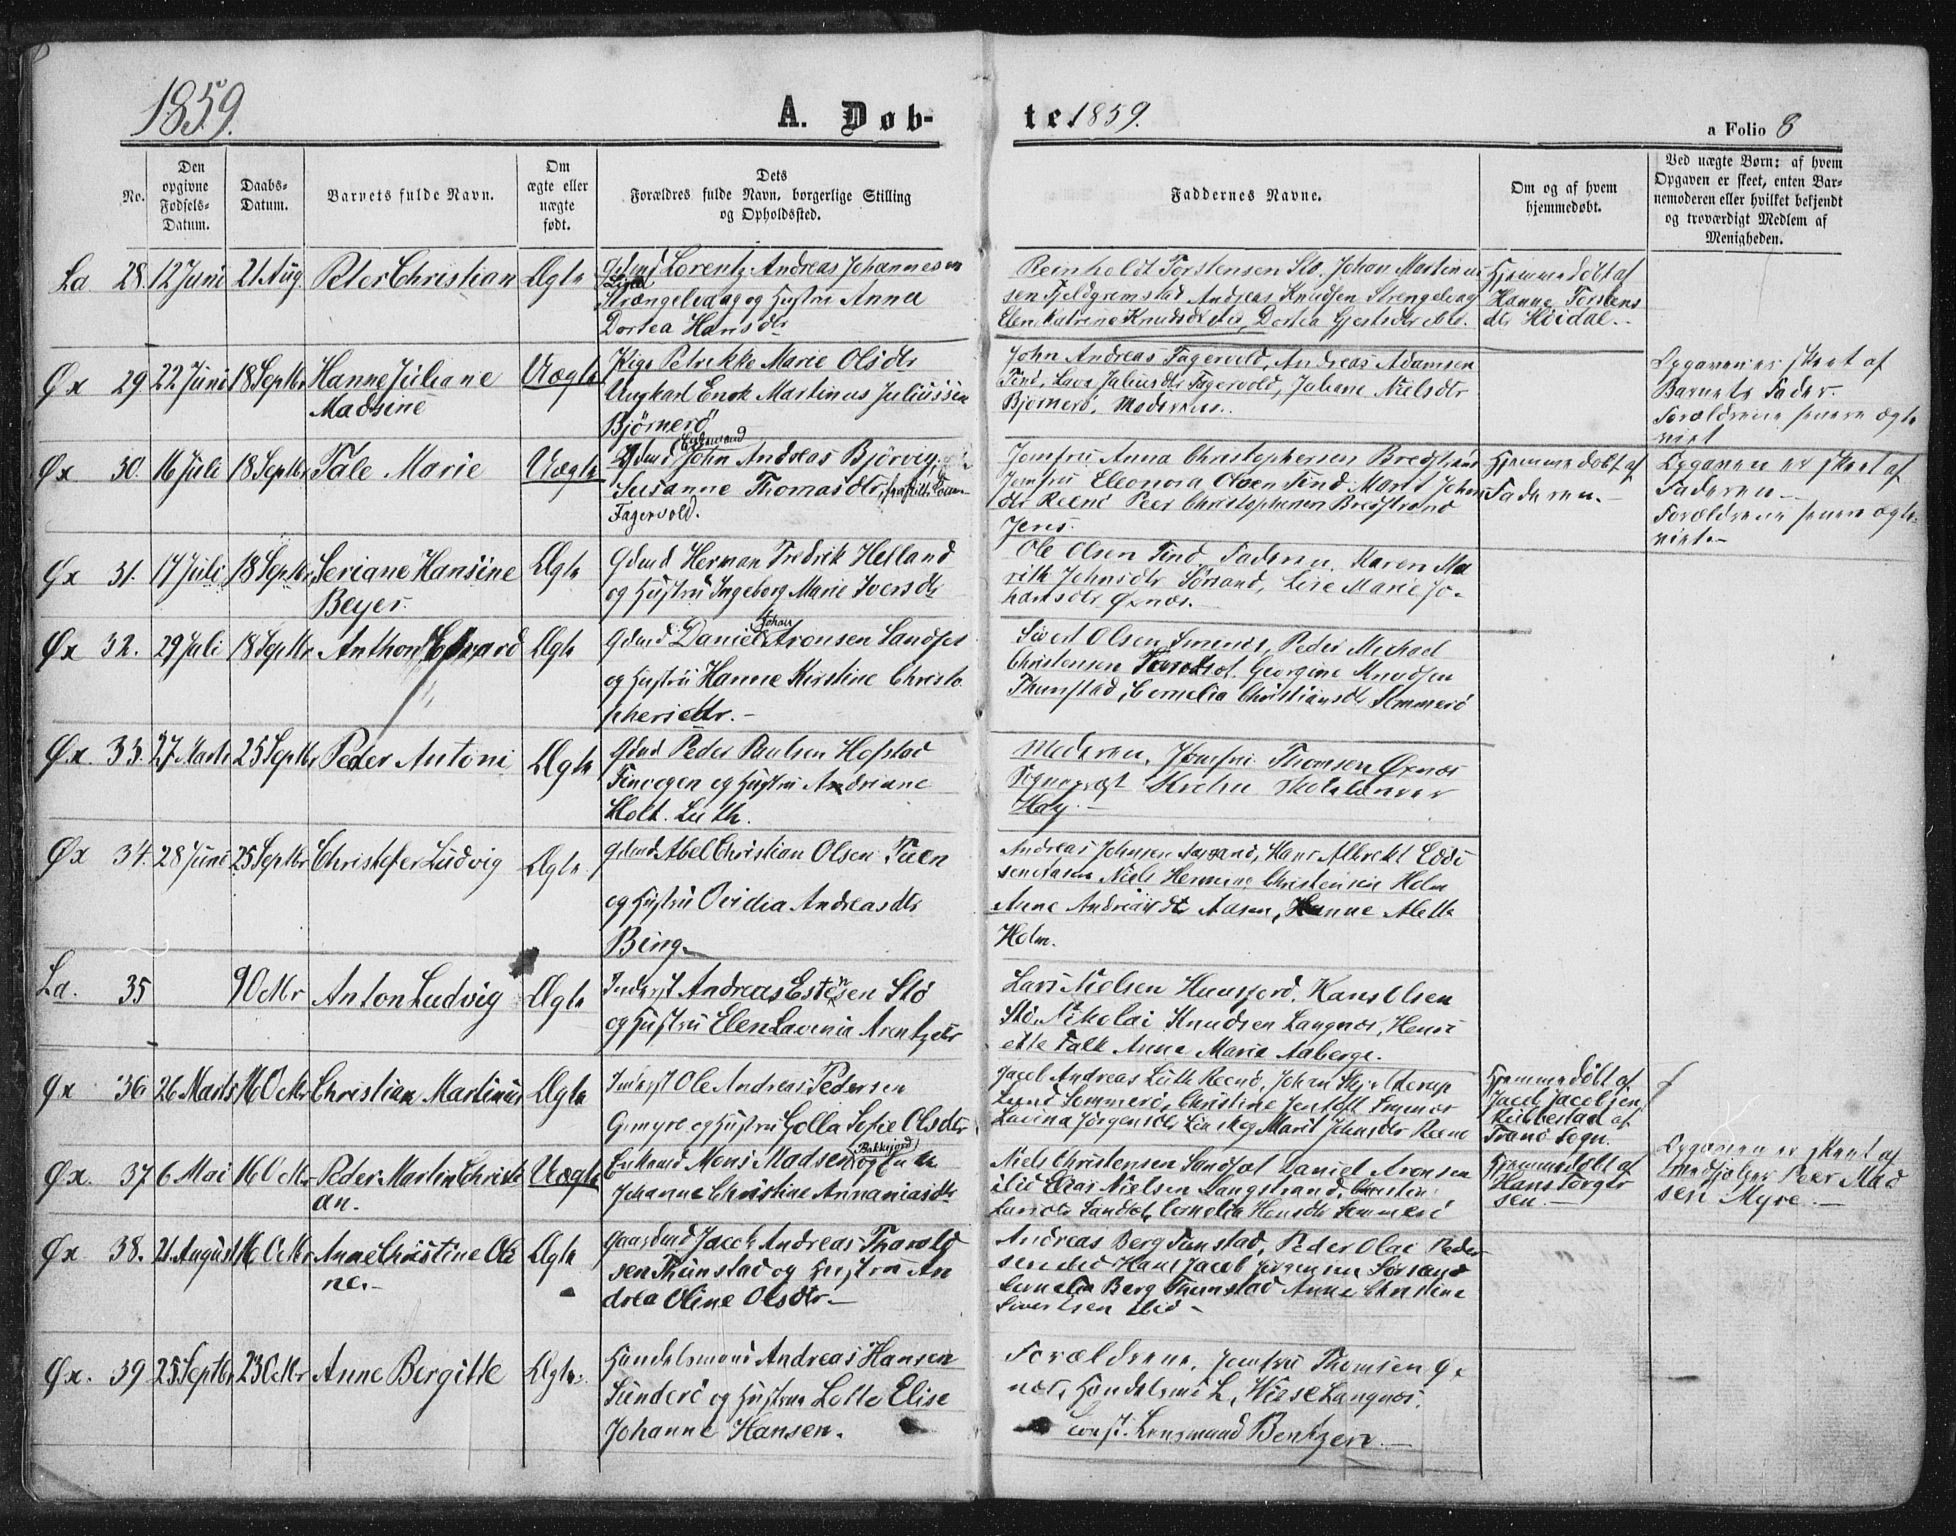 1859.
A. Døb-
te 1859.
a Folio 8
No.
Den
opgivne
Fødsels-
Datum.
Daabs-
Datum.
Barnets fulde Navn.
Om
ægte eller
uægte
født.
Dets
Forældres fulde Navn, borgerlige Stilling
og Opholdssted.
Faddernes Navne.
Om og af hvem
hjemmedøbt.
Ved uægte Børn: af hvem
Opgaven er skeet, enten Bar-
nemoderen eller hvilket bekjendt
og troværdigt Medlem af
Menigheden.
La 28. 12 Juni 21 Aug Peter Christian Ægte
Gdmd Lorentz Andreas Johannesen
Strængelvaag og Hustru Anna
Dortea Hansdtr
Reinholdt Torstensen Stø, Johan Martinus
sen Fjeldgremstad Andreas Knudsen Strengelvaag
Elen Katrine Knudsdtr Dortea
Hjemmedøbt af
Hanne Torstens
dtr Høidal.
Øx 29 22 Juni 18 Septbr Hanne Juliane
Madsine
Uægte
Pige Petrikke Marie Olsdtr
Ungkarl Enok Martinus Juliussen
Bjørnerö
John Andreas Fagervold, Andreas Adamsen
Tind, Lava Juliusdtr Fagervold, Juliane Nielsdtr
Bjørnerö, Moderen.
Opgaven er skeet af
Barnets Fader.
Forældrene senere ægte
viet
Øx 30. 16 Juli 18 Septbr Tale Marie Uægte
Enkemand
Gdmd John Andreas Bjørvig,
Susanne Thomasdtr, fraskilt
Fagervold.
Jomfru Anna Christophersen Bredstrand
Jomfru Eleonora Olsen Tind Marit Johns
dtr Reenö Peer Christophersen Bredstrand
Jens.
Hjemmedøbt af
Faderen.
Opgaven er skeet af
Faderen
Forældrene senere ægte-
viet.
Øx 31. 17 Juli 18 Septbr Seriane Hansine
Beyer.
Ægte
Gdmd Herman Fredrik Helland
og Hustru Ingeborg Marie Iversdtr
Ole Olsen Tind Faderen, Maren Ma
rith Johnsdtr Sørsand, Lise Marie Jo-
hansdtr Øxnæs.
Øx 32. 29 Juli 18 Septbr Anthon Edvard Ægte
Johan
Gdmd Daniel Aronsen Sandset
og Hustru Hanne Kirstine Christo
phersdtr.
Sivert Olsen Smenes, Peder Michael
Christensen Georgine Knudsen
Thunstad, Cornelia Christiansdtr Semmerö
Øx. 33. 27 Marts 25 Septbr Peder Antoni Ægte
Gdmd Peder Paulsen Hofstad
Finvogen og Hustru Andriane
Holt. Luth.
Moderen, Jomfru Thomsen Øxnæs
Sognepræst Krohn Skolelærer
Høy.
Øx 34. 28 Juni 25 Septbr Christofer Ludvig Ægte
Gdmd Abel Christian Olsen Tuen
og Hustru Ovidia Andreasdtr
Bing
Andreas Johnsen Sørsand, Hans Albrekt Eddi
sen Aasen Niels Herman Christensen Holm
Anne Andreasdtr Aasen, Hanne Aletta
Holm.
La. 35 9 Octbr Anton Ludvig Ægte
Inderst Andreas Estensen Stö
og Hustru Elen Lavinia Arentzdtr
Lars Nielsen Husfjord, Hans Olsen
Stö, Nikolai Knudsen Langnæs, Henri
ette Falk Anna Maria Aaberge.
Øx 36 26 Marts 16 Octbr Christian Martinus Ægte
Inderst Ole Andreas Pedersen
Gimyre og Hustru Golla Sofie Olsdtr
Jacob Andreas Luth Reenö, Johan Hjelterup
Lund Sommerö, Christine Jentoft Smenæs
Lavina Jørgensdtr Linskog Marit Johnsdtr Reenö
Hjemmedøbt af
Jacob Jacobsen
Kubbestad af
Tranö Sogn.
Øx. 37. 6 Mai 16 Octbr Peder Martin Christi
an.
Uægte
Bakkejord
Enkemd Mons Madsen og Enke
Johanna Christine Annaniasdtr
Niels Christensen Sandset Daniel Aronsen
ibid Elias Nielsen Langstrand, Christen
Larsdtr Sandset, Cornelia Hansdtr Semmerö
Hjemmedøbt af
Hans Jørgen
sen.
Opgaven er skeet af
Medhjelper Peer Mad
sen Myre.
Øx 38. 21 August 16 Octbr Anne Christine Ole
ne.
Ægte
Gaardmd Jacob Andreas Tharald
sen Thunstad og Hustru An
drea Oline Olsdtr
Andreas Berg Tunstad, Peder Olai Peder
sen ibid Hans Jacob Jørgensen Sørsand
Cornelia Berg Thunstad Anne Christine
Sivertsen ibid
Øx. 39 25 Septbr 23 Octbr Anne Bergitte Ægte.
Handelsmand Andreas Hansen
Sunderö og Hustru Lotte Elise
Johanne Hansen.
Forældrene, Jomfru Thomsen Ø.
næs, Handelsmd L. Wiese Langnæs.
Const. Lensmand Bentzen